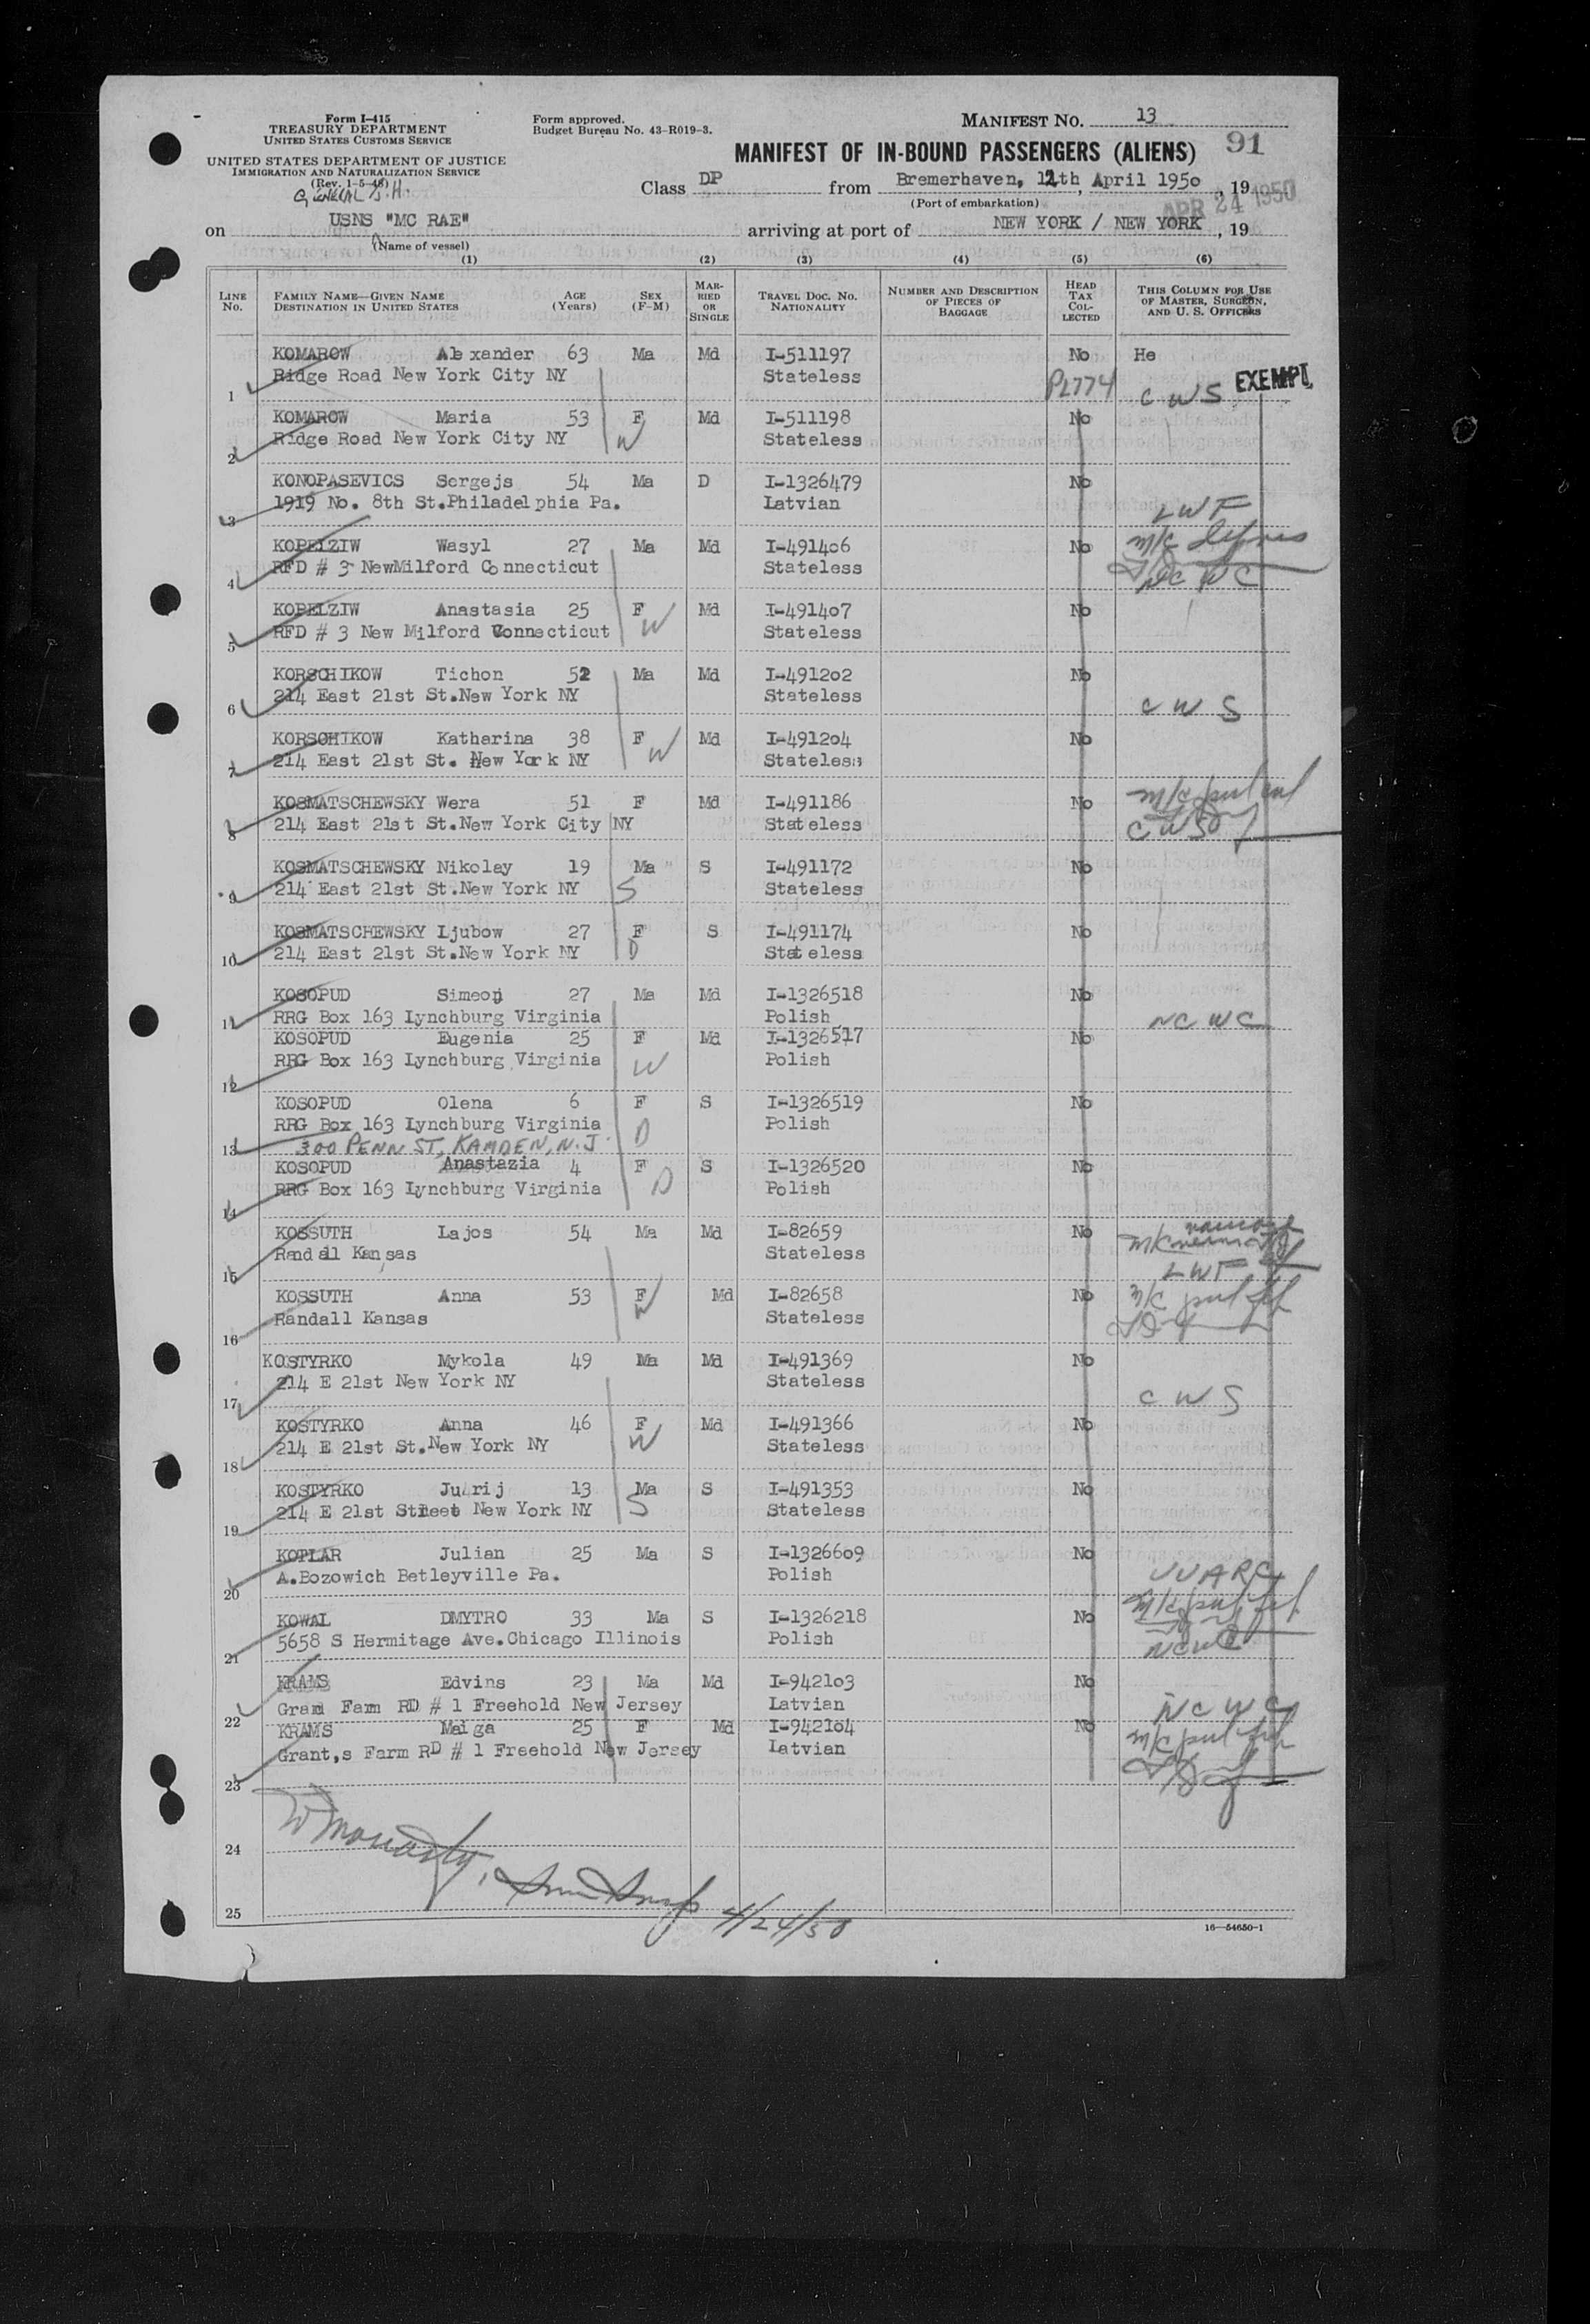 Form I-415
TREASURY DEPARTMENT
UNITED STATES CUSTOMS SERVICE
UNITED STATES DEPARTMENT OF JUSTICE
IMMIGRATION AND NATURALIZATION SERVICE
(Rev. 1-5-48)
Form approved.
Budget Bureau No. 43-R019-3.
MANIFEST NO. 13
MANIFEST OF IN-BOUND PASSENGERS (ALIENS) 91
Class DP from Bremerhaven, 12th, April 1950, 19
(Port of embarkation)
APR 24 1950
GENERAL J.H.
on USNS "MC RAE" arriving at port of NEW YORK / NEW YORK, 19
(Name of vessel)
(1) (2) (3) (4) (5) (6)
LINE No. FAMILY NAME—GIVEN NAME DESTINATION IN UNITED STATES AGE (Years) SEX (F-M) MARRIED OR SINGLE TRAVEL DOC. NO. NATIONALITY NUMBER AND DESCRIPTION OF PIECES OF BAGGAGE HEAD TAX COLLECTED THIS COLUMN FOR USE OF MASTER, SURGEON, AND U. S. OFFICERS
KOMAROW Alexander 63 Ma Md I-511197 No He
1 Ridge Road New York City NY Stateless PL774 CWS EXEMPT
KOMAROW Maria 53 F Md I-511198 No
2 Ridge Road New York City NY W Stateless
KONOPASEVICS Sergejs 54 Ma D I-1326479 No
3 1919 No. 8th St.Philadelphia Pa. Latvian LWF
KOPELZIW Wasyl 27 Ma Md I-491406 No
4 RFD # 3 NewMilford Connecticut Stateless NCWC
KOPELZIW Anastasia 25 F Md I-491407 No
5 RFD # 3 New Milford Connecticut W Stateless
KORSCHIKOW Tichon 52 Ma Md I-491202 No
6 214 East 21st St.New York NY Stateless CWS
KORSCHIKOW Katharina 38 F Md I-491204 No
7 214 East 21st St. New York NY W Stateless
KOSMATSCHEWSKY Wera 51 F Md I-491186 No
8 214 East 21st St.New York City NY Stateless CWS
KOSMATSCHEWSKY Nikolay 19 Ma S I-491172 No
9 214 East 21st St.New York NY S Stateless
KOSMATSCHEWSKY Ljubow 27 F S I-491174 No
10 214 East 21st St.New York NY D Stateless
KOSOPUD Simeon 27 Ma Md I-1326518 No
11 RRG Box 163 Lynchburg Virginia Polish NCWC
KOSOPUD Eugenia 25 F Md I-1326517 No
12 RRG Box 163 Lynchburg Virginia W Polish
KOSOPUD Olena 6 F S I-1326519 No
RRG Box 163 Lynchburg Virginia D Polish
13 300 PENN ST, KAMDEN, N.J.
KOSOPUD Anastazia 4 F S I-1326520 No
14 RRG Box 163 Lynchburg Virginia D Polish
KOSSUTH Lajos 54 Ma Md I-82659 No
15 Randall Kansas Stateless LWF
KOSSUTH Anna 53 F Md I-82658 No
16 Randall Kansas W Stateless
KOSTYRKO Mykola 49 Ma Md I-491369 No
17 214 E 21st New York NY Stateless CWS
KOSTYRKO Anna 46 F Md I-491366 No
18 214 E 21st St.New York NY W Stateless
KOSTYRKO Jurij 13 Ma S I-491353 No
19 214 E 21st Street New York NY S Stateless
KOTLAR Julian 25 Ma S I-1326609 No
20 A.Bozowich Betleyville Pa. Polish UUARC
KOWAL DMYTRO 33 Ma S I-1326218 No
21 5658 S Hermitage Ave.Chicago Illinois Polish NCWC
KRAMS Edvins 23 Ma Md I-942103 No
22 Grand Farm RD # 1 Freehold New Jersey Latvian NCWC
KRAMS Maiga 25 F Md I-942104 No
23 Grant,s Farm RD # 1 Freehold New Jersey Latvian
24
25
4/24/50
16—54650-1